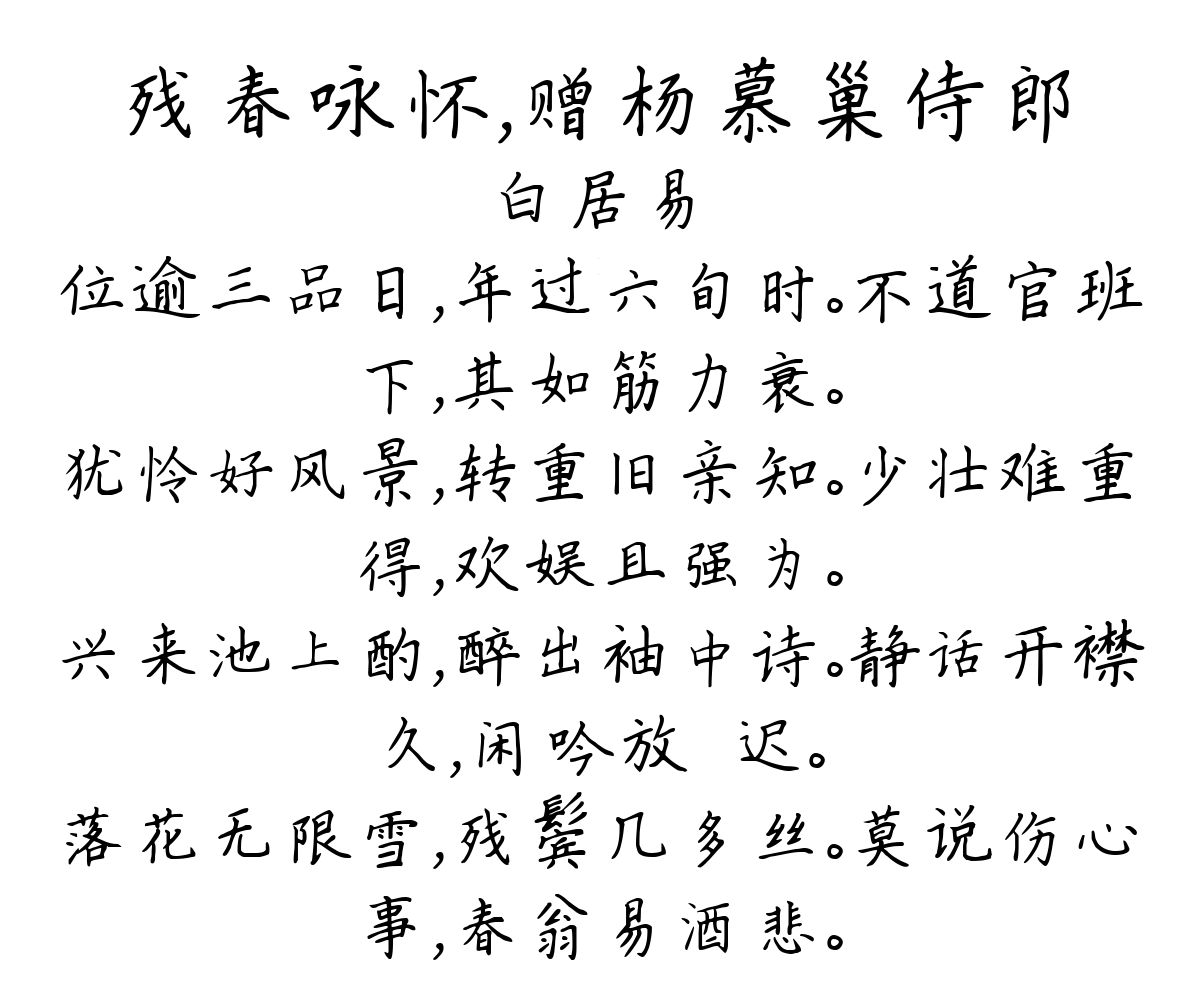 残春咏怀,赠杨慕巢侍郎
白居易
位逾三品日,年过六旬时。不道官班
下,其如筋力衰。
犹怜好风景,转重旧亲知。少壮难重
得,欢娱且强为。
兴来池上酌,醉出袖中诗。静话开襟
久,闲吟放 迟。
落花无限雪,残鬓几多丝。莫说伤心
事,春翁易酒悲。